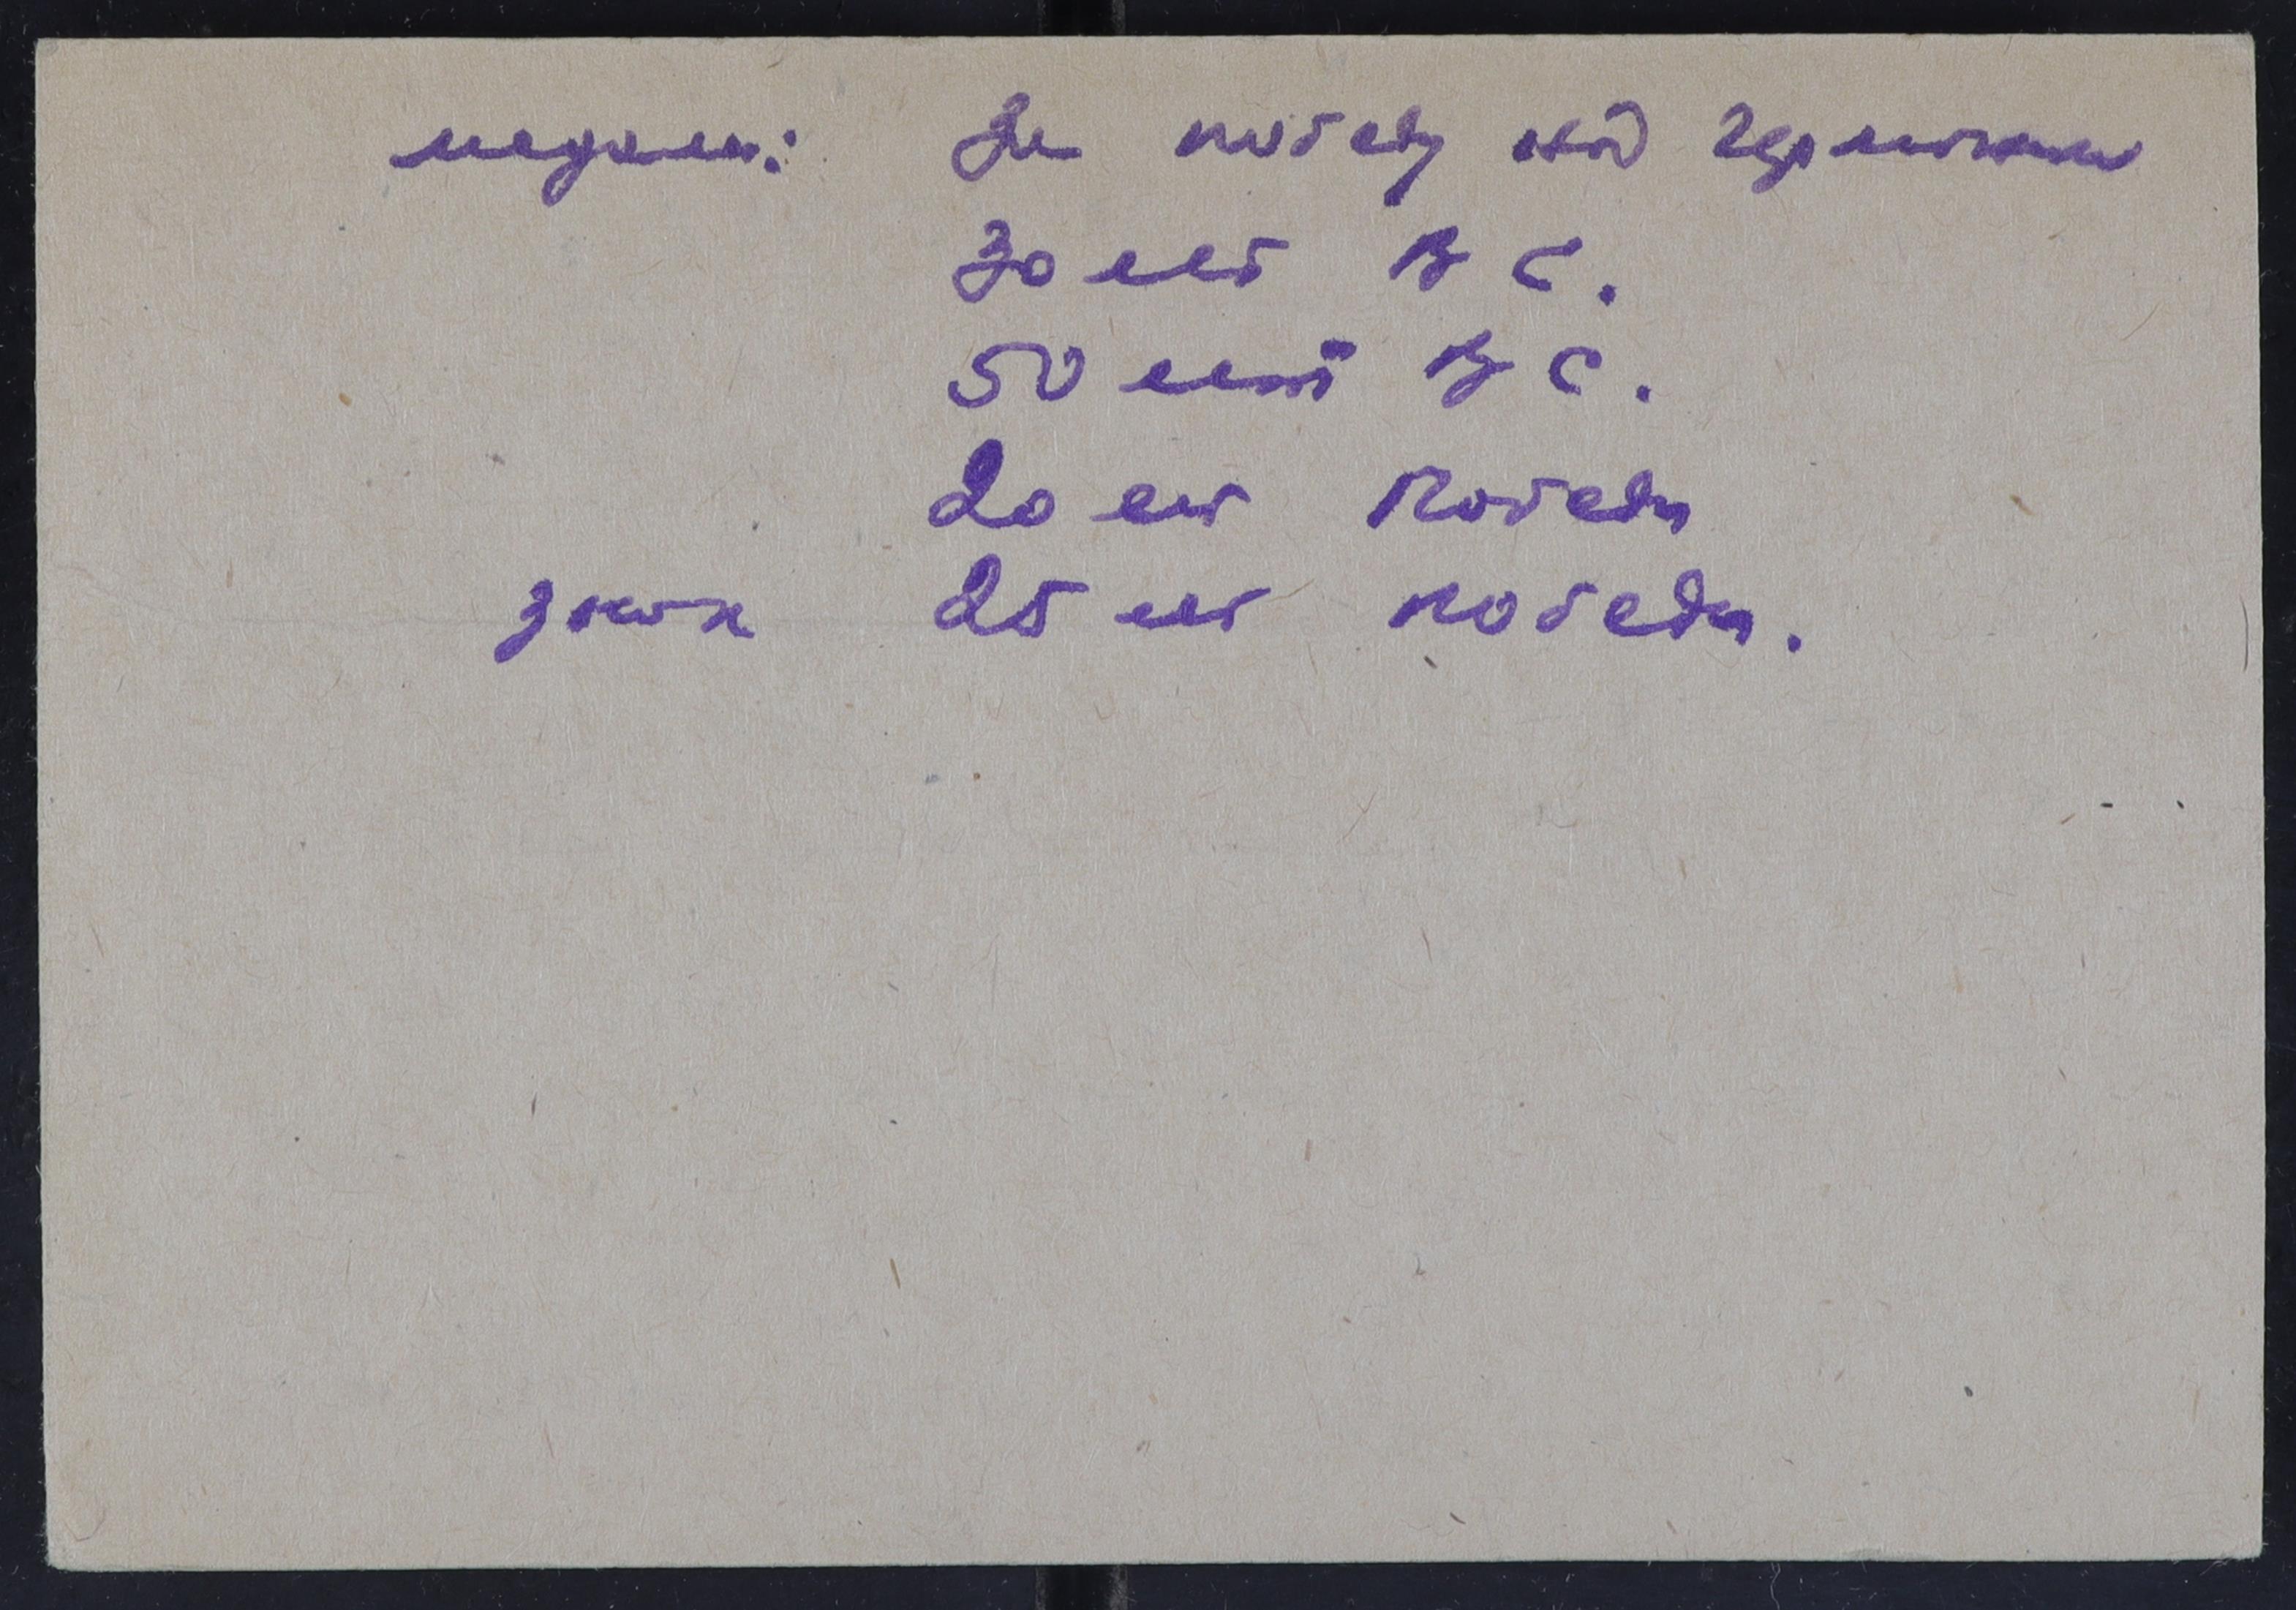 медали: За победу над Германией
30 лет В С.
50 лет В С.
20 лет Победы
знак 25 лет победы.